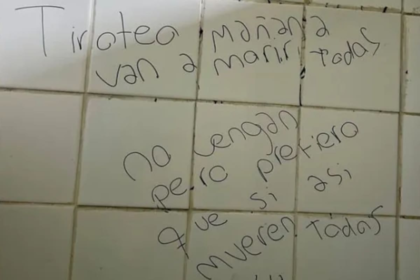 Tirotea mañana
van a marir todas
no vengan
pero prefiero
que si asi
mueren todas